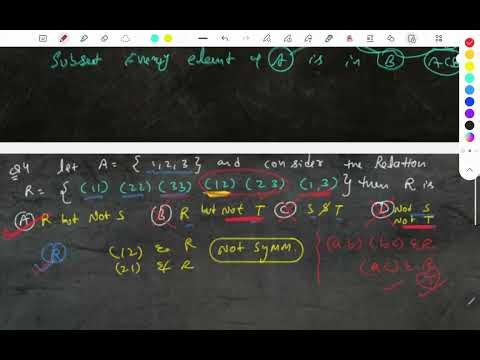 Subset Every element of A is in B A⊂B
Q4 let A = { 1,2,3 } and consider the Relation
R = { (11) (22) (33) (12) (23) (1,3) } then R is
A R but Not S B R but Not T C S & T D Not S Not T
R (12) ∈ R Not Symm. (ab) (bc) ∈ R
(21) ∉ R (ac) ∈ R
T